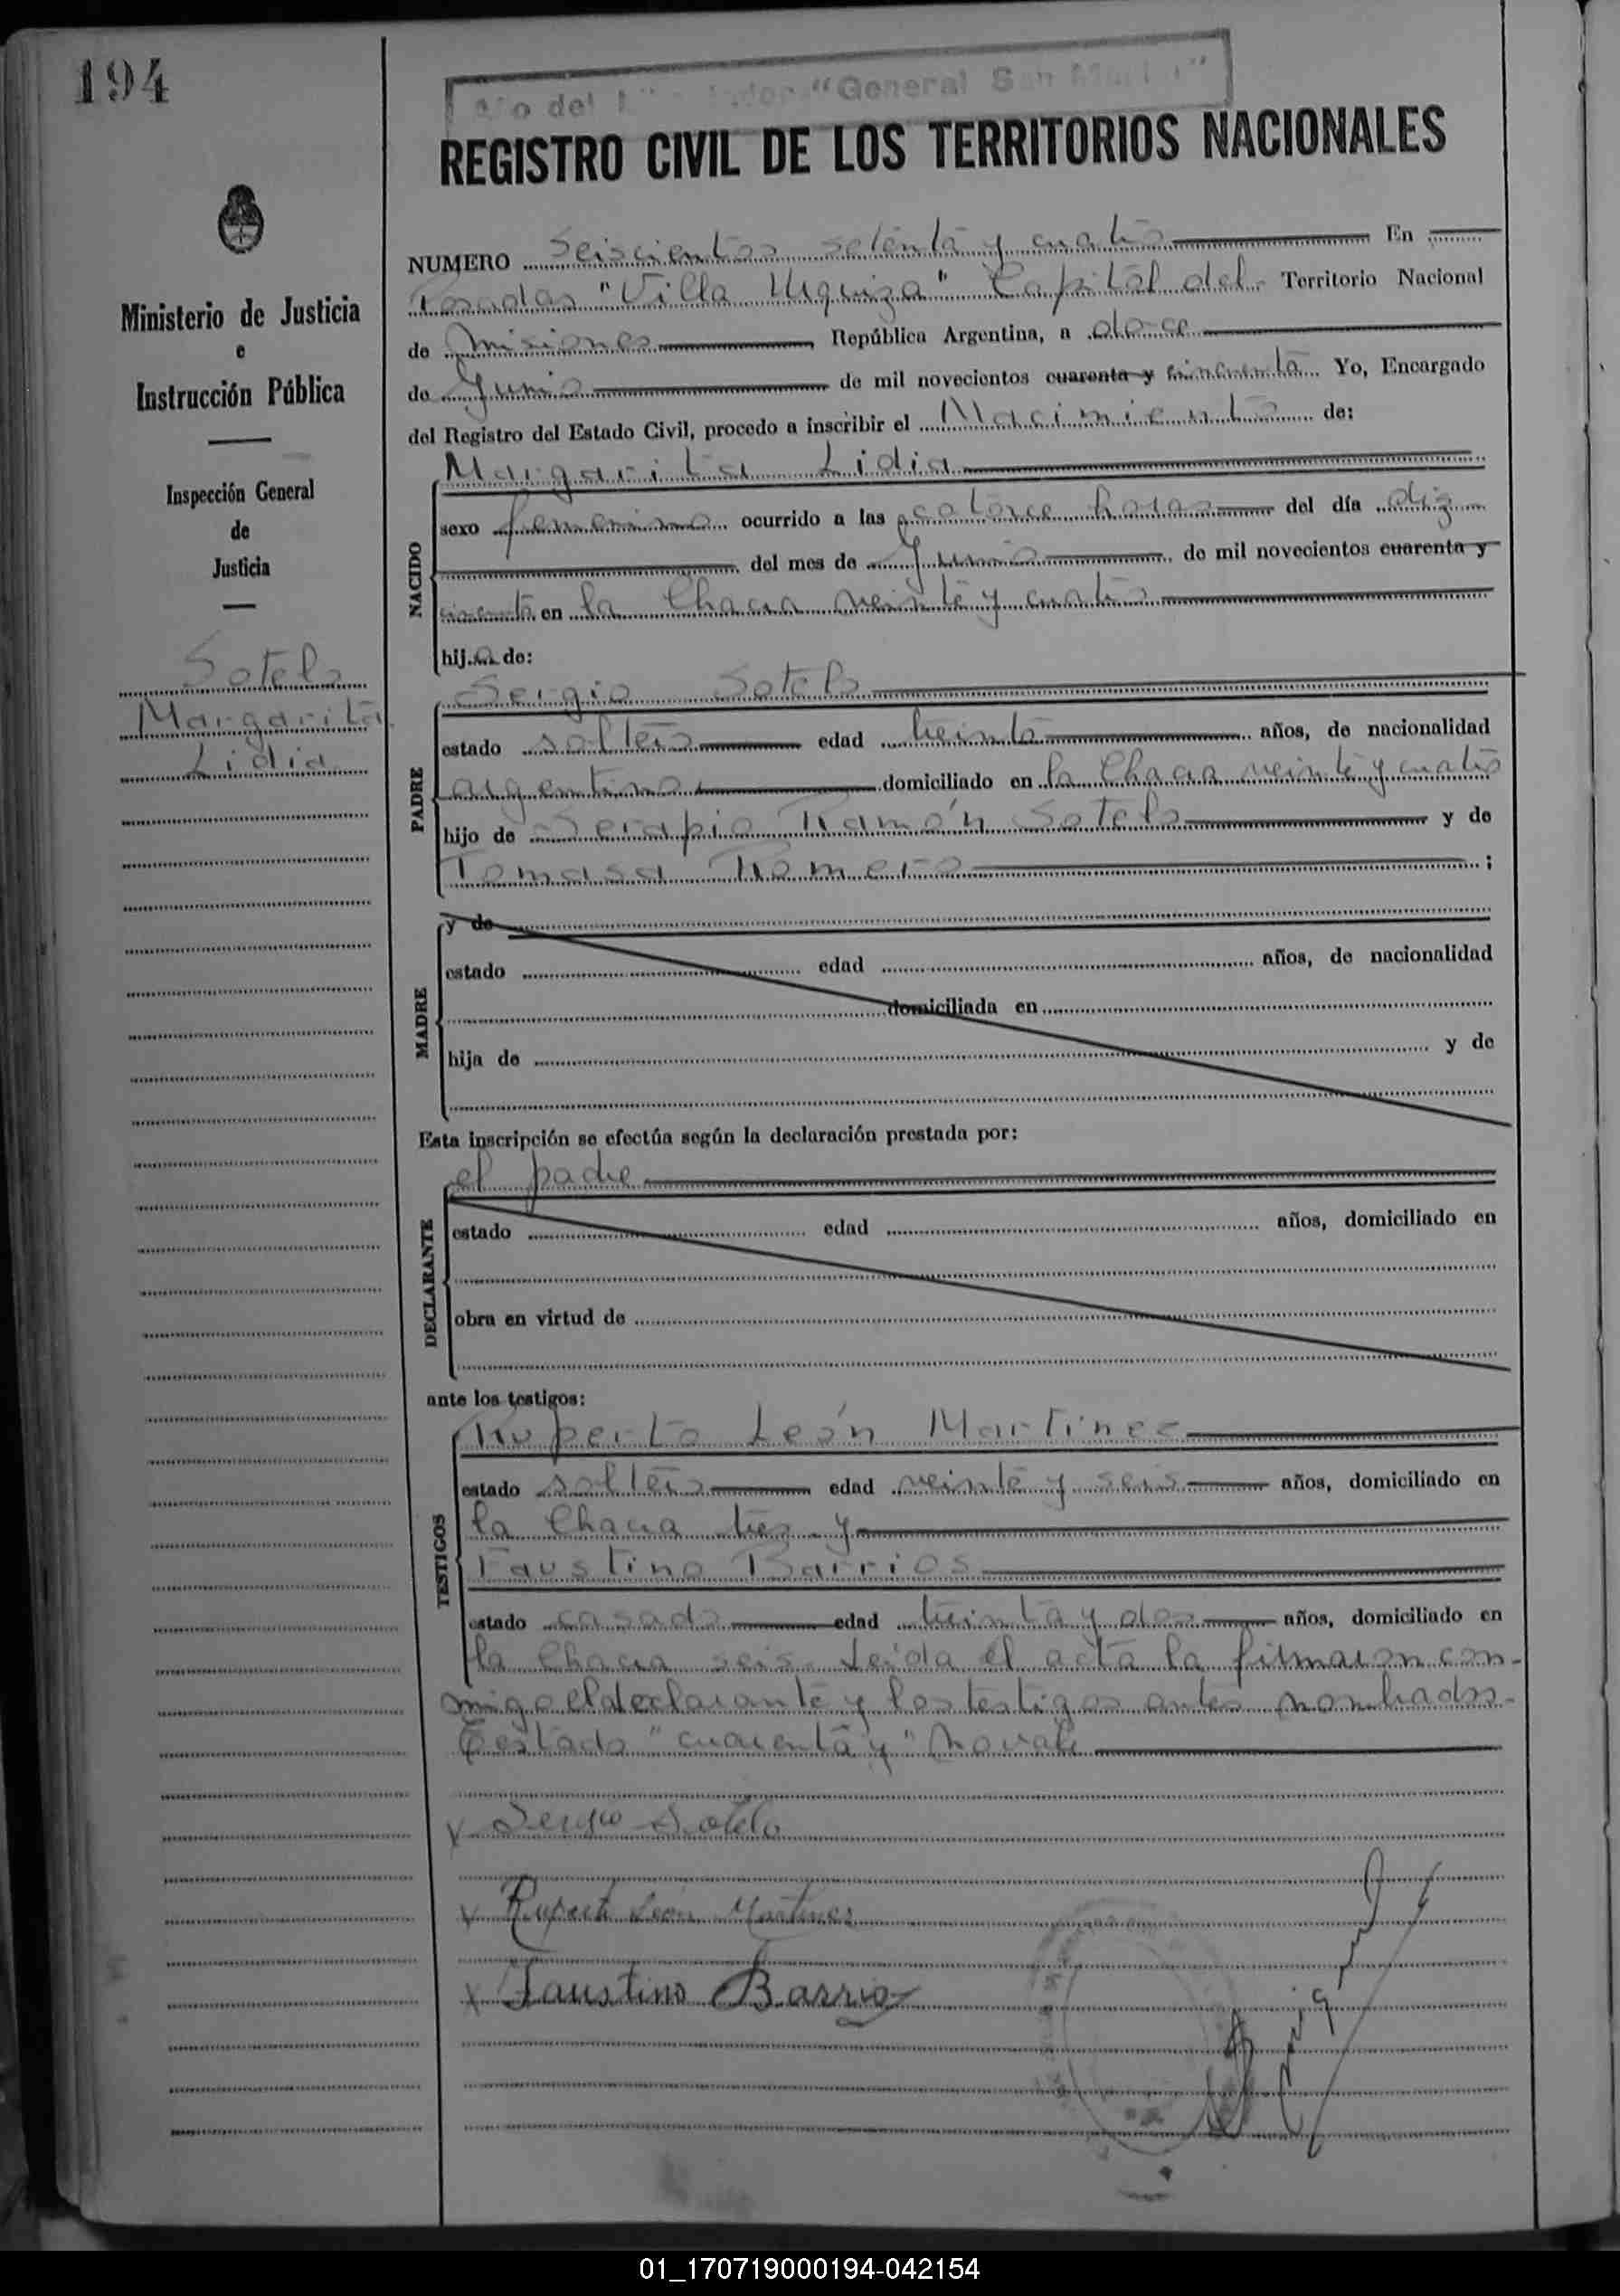 194
Año del "General San Martín"
REGISTRO CIVIL DE LOS TERRITORIOS NACIONALES
Ministerio de Justicia
e
Instrucción Pública
Inspección General
de
Justicia
Sotelo
Margarita
Lidia
NUMERO Seiscientos setenta y cuatro En
Posadas "Villa Urquiza" Capital del Territorio Nacional
de Misiones República Argentina, a doce
de Junio de mil novecientos cuarenta y cincuenta Yo, Encargado
del Registro del Estado Civil, procedo a inscribir el Nacimiento de:
NACIDO
Margarita Lidia
sexo femenino ocurrido a las catorce horas del día diz
del mes de Junio de mil novecientos cuarenta y
cincuenta en la Chacra veinte y cuatro
hija de:
PADRE
Sergio Sotelo
estado soltero edad treinta años, de nacionalidad
argentino domiciliado en la Chacra veinte y cuatro
hijo de Serapio Ramón Sotelo y de
Tomasa Romero ;
MADRE
y de
estado edad años, de nacionalidad
domiciliada en
hija de y de
Esta inscripción se efectúa según la declaración prestada por:
DECLARANTE
el padre
estado edad años, domiciliado en
obra en virtud de
ante los testigos:
TESTIGOS
Ruperto León Martinez
estado soltero edad veinte y seis años, domiciliado en
la Chacra tres y
Faustino Barrios
estado casado edad treinta y dos años, domiciliado en
la Chacra seis. Leída el acta la firmaron con-
migo el declarante y los testigos antes nombrados.
Testado "cuarenta y" no vale
x Sergio Sotelo
x Ruperto León Martinez
x Faustino Barrios
01_170719000194-042154